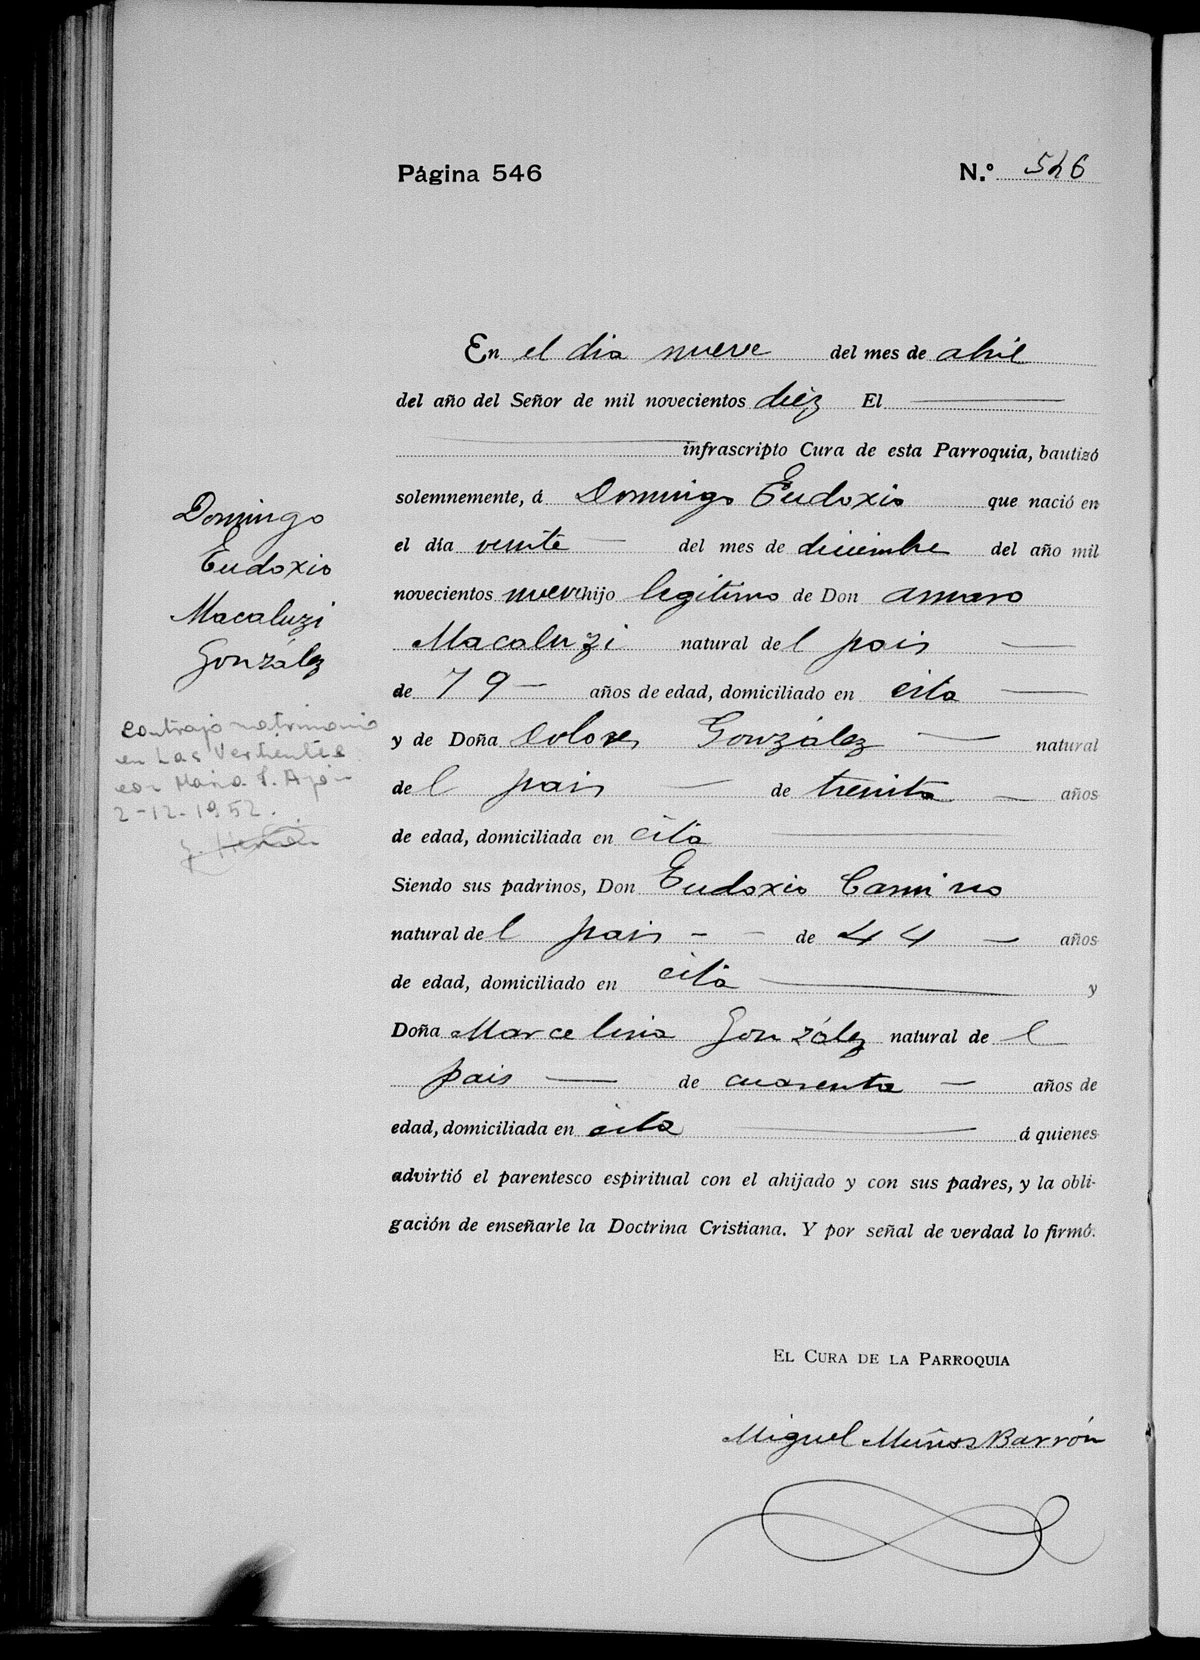 Página 546
N.º 546
En el dia nueve del mes de abril
del año del Señor de mil novecientos diez El
infrascripto Cura de esta Parroquia, bautizó
solemnemente, á Domingo Eudoxio que nació en
el día veinte del mes de diciembre del año mil
novecientos nueve hijo legitimo de Don Amaro
Macaluzi natural del pais
de 79 años de edad, domiciliado en esta
y de Doña Dolores González natural
del pais de treinta años
de edad, domiciliada en esta
Siendo sus padrinos, Don Eudoxio Camino
natural del pais de 44 años
de edad, domiciliado en esta y
Doña Marcelina González natural del
pais de cuarenta años de
edad, domiciliada en esta á quienes
advirtió el parentesco espiritual con el ahijado y con sus padres, y la obli-
gación de enseñarle la Doctrina Cristiana. Y por señal de verdad lo firmó.
EL CURA DE LA PARROQUIA
Miguel Muños Barrón
Domingo
Eudoxio
Macaluzi
González
contrajo matrimonio
en Las Vertientes
con Maria
2-12-1952.